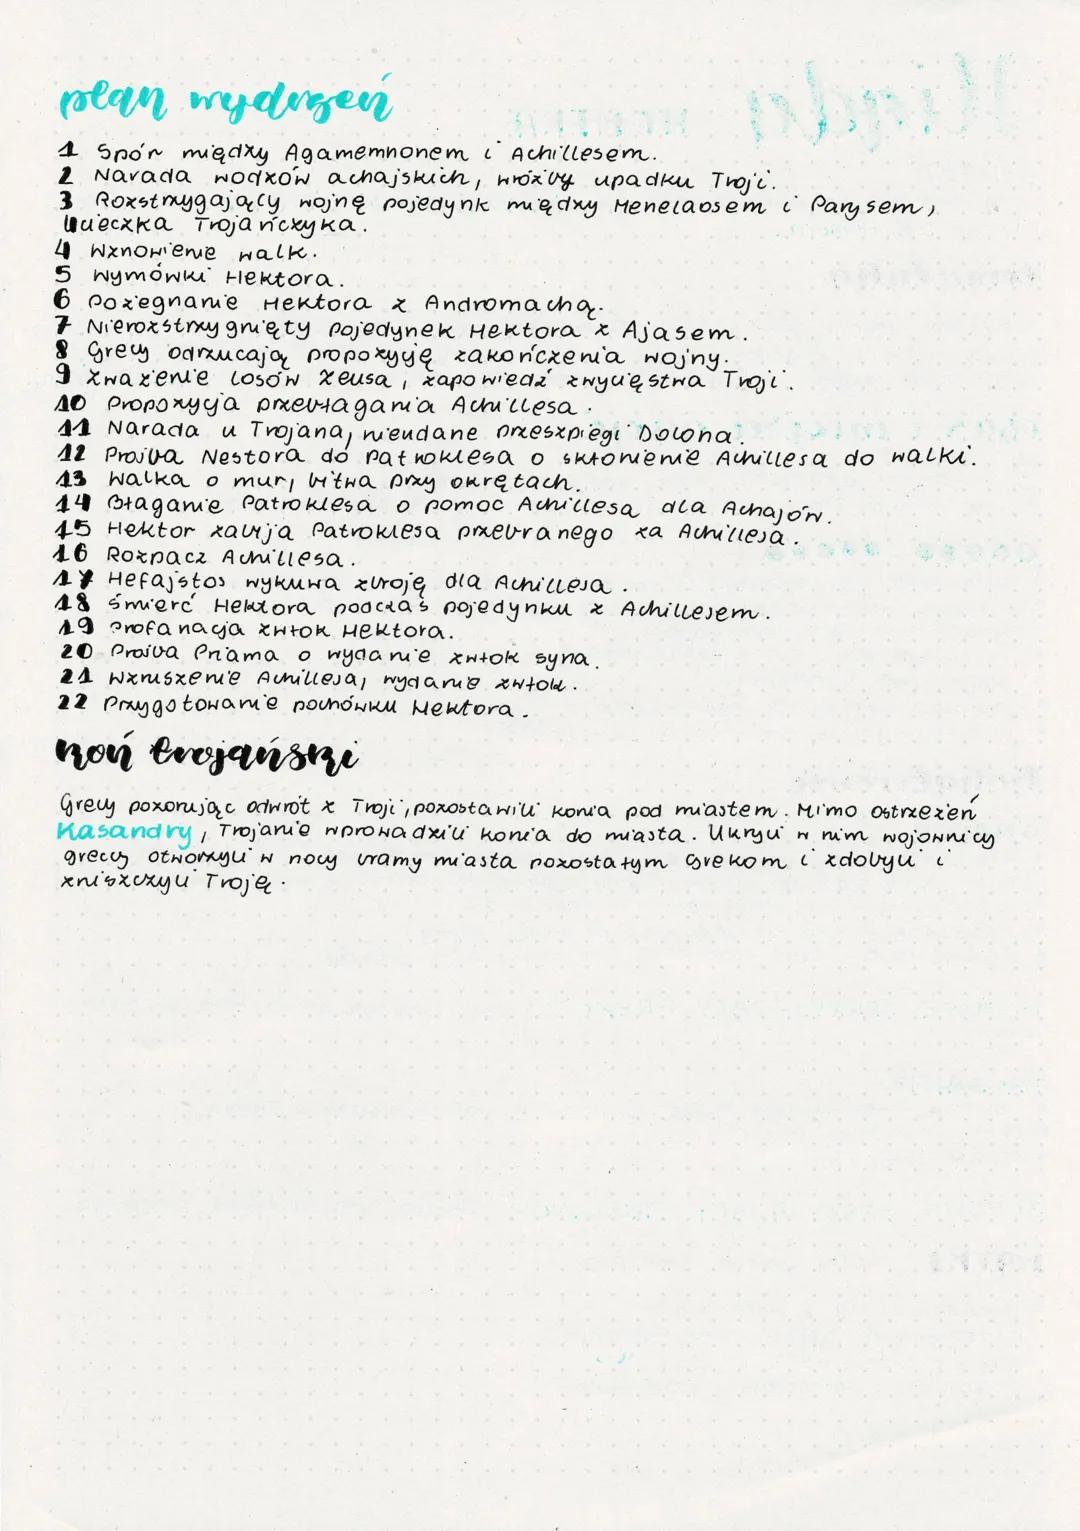 plan wydarzeń
1 Spór między Agamemnonem i Achillesem.
2 Narada wodzów achajskich, wróżby upadku Troji.
3 Rozstrzygający wojnę pojedynk między Menelaosem i Parysem,
ucieczka Trojańczyka.
4 Wznowienie walk.
5 Wymówki Hektora.
6 Pożegnanie Hektora z Andromachą.
7 Nierozstrzygnięty pojedynek Hektora z Ajasem.
8 Grecy odrzucają propozycję zakończenia wojny.
9 Zważenie losów Zeusa, zapowiedź zwycięstwa Troji.
10 Propozycja przebłagania Achillesa.
11 Narada u Trojana, nieudane przeszpiegi Dolona.
12 Prośba Nestora do Patroklesa o skłonienie Achillesa do walki.
13 Walka o mur, bitwa przy okrętach.
14 Błaganie Patroklesa o pomoc Achillesa dla Achajów.
15 Hektor zabija Patroklesa przebranego za Achillesa.
16 Rozpacz Achillesa.
17 Hefajstos wykuwa zbroję dla Achillesa.
18 Śmierć Hektora podczas pojedynku z Achillesem.
19 Profanacja zwłok Hektora.
20 Prośba Priama o wydanie zwłok syna.
21 Wzruszenie Achillesa, wydanie zwłok.
22 Przygotowanie pochówku Hektora.
koń trojański
Grecy pozorując odwrót z Troji, pozostawili konia pod miastem. Mimo ostrzeżeń
Kasandry, Trojanie wprowadzili konia do miasta. Ukryci w nim wojownicy
greccy otworzyli w nocy bramy miasta pozostałym Grekom i zdobyli i
zniszczyli Troję.